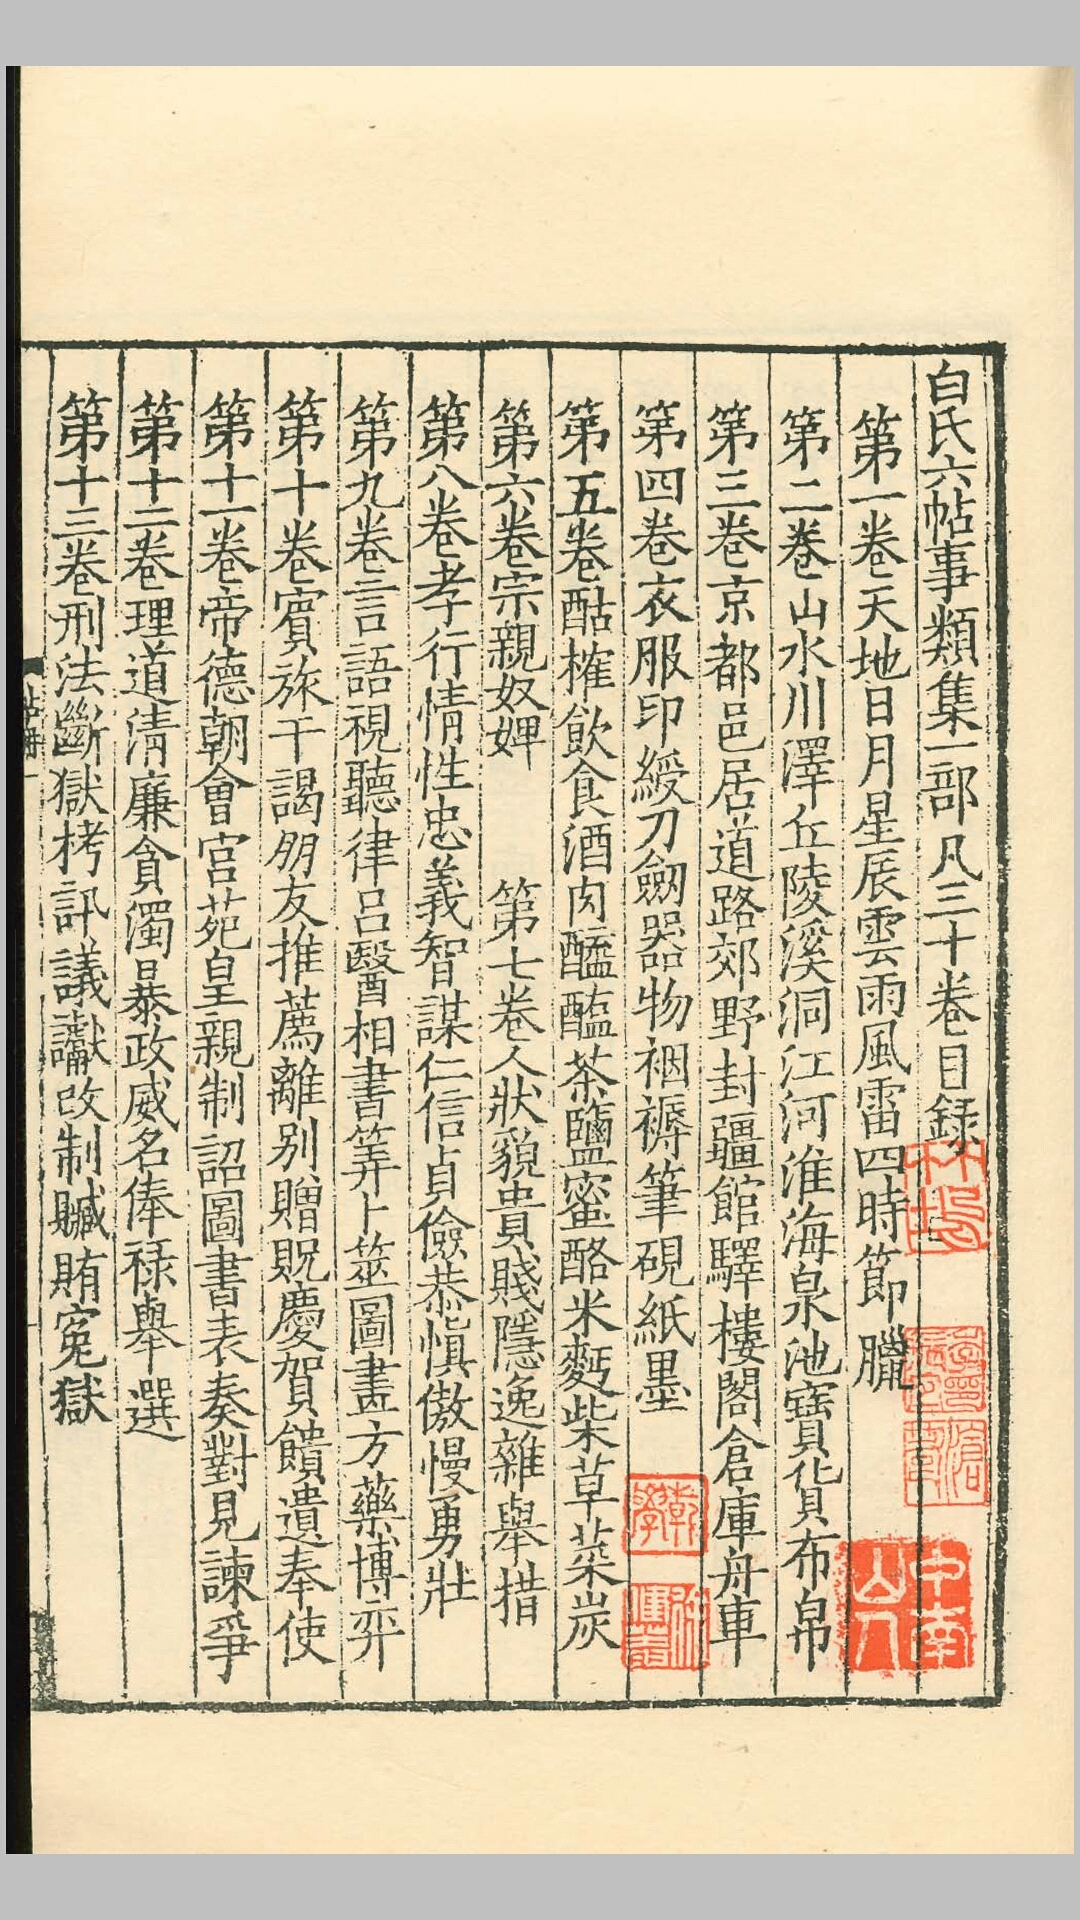 白氏六帖事類集一部凡三十卷目錄
第一卷天地日月星辰雲雨風雷四時節臘
第二卷山水川澤丘陵溪洞江河淮海泉池寶貨布帛
第三卷京都邑居道路郊野封疆館驛樓閣倉庫舟車
第四卷衣服印綬刀劒器物裀褥筆硯紙墨
第五卷酤榷飲食酒肉醯醢茶鹽蜜酪米麪柴草菜炭
第六卷宗親奴婢 第七卷人狀貌貴賤隱逸雜舉措
第八卷孝行情性忠義智謀仁信貞儉恭慎傲慢勇壯
第九卷言語視聽律呂醫相書筭卜筮圖畫方藥博弈
第十卷賓旅干謁朋友推薦離別贈貺慶賀饋遺奉使
第十一卷帝德朝會宮苑皇親制詔圖書表奏對見諫爭
第十二卷理道清廉貪濁暴政威名俸祿舉選
第十三卷刑法斷獄栲訊議讞改制贓賄寃獄
帖冊一
中南山人